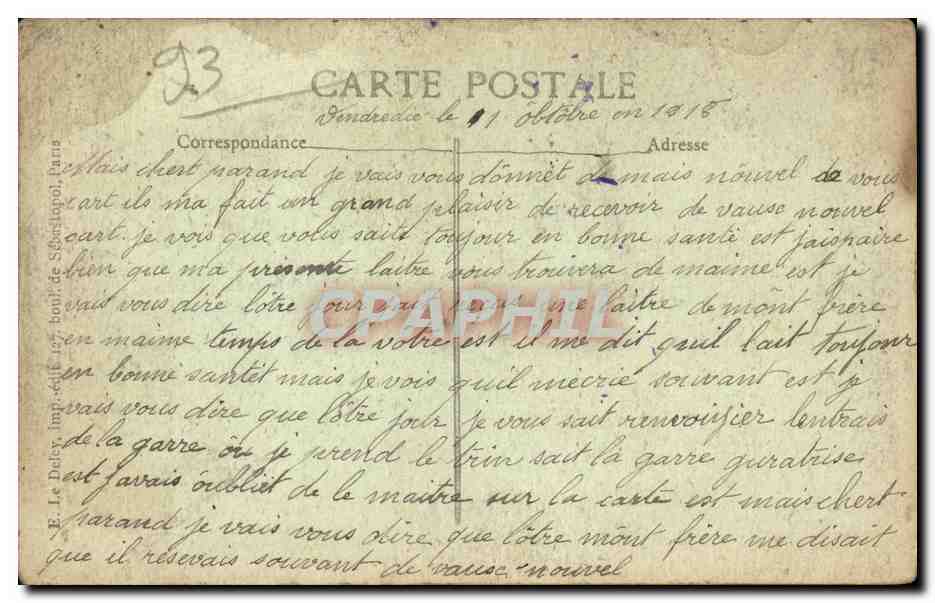 93
CARTE POSTALE
Vendredie le 11 obtôbre en 1918
Correspondance
Adresse
Mais chert parand je vais vous dônnét de mais nouvel de vous
cart ils ma fait un grand plaisir de recevoir de vausc nouvel
cart je vois que vous saite toujour en bonne santé est jaispaire
bien que ma presente laitre vous trouvera de maime est je
vais vous dire lôtre jour jait reçus une laitre de mônt frère
en maime temps de la votre est il me dit quil lait toujour
en bonne santét mais je vois quil mécrie souvant est je
vais vous dire que lôtre jour je vous sait renvoiyier lentrais
de la garre ôu je prend le trin sait la garre guratrise
est javais ôubliét de le maitre sur la carte est mais chert
parand je vais vous dire que lôtre mônt frère me disait
que il resevais souvant de vausc nouvel
E. Le Deley, imp.-édit. 127, boul. de Sébastopol, Paris
CPAPHIL